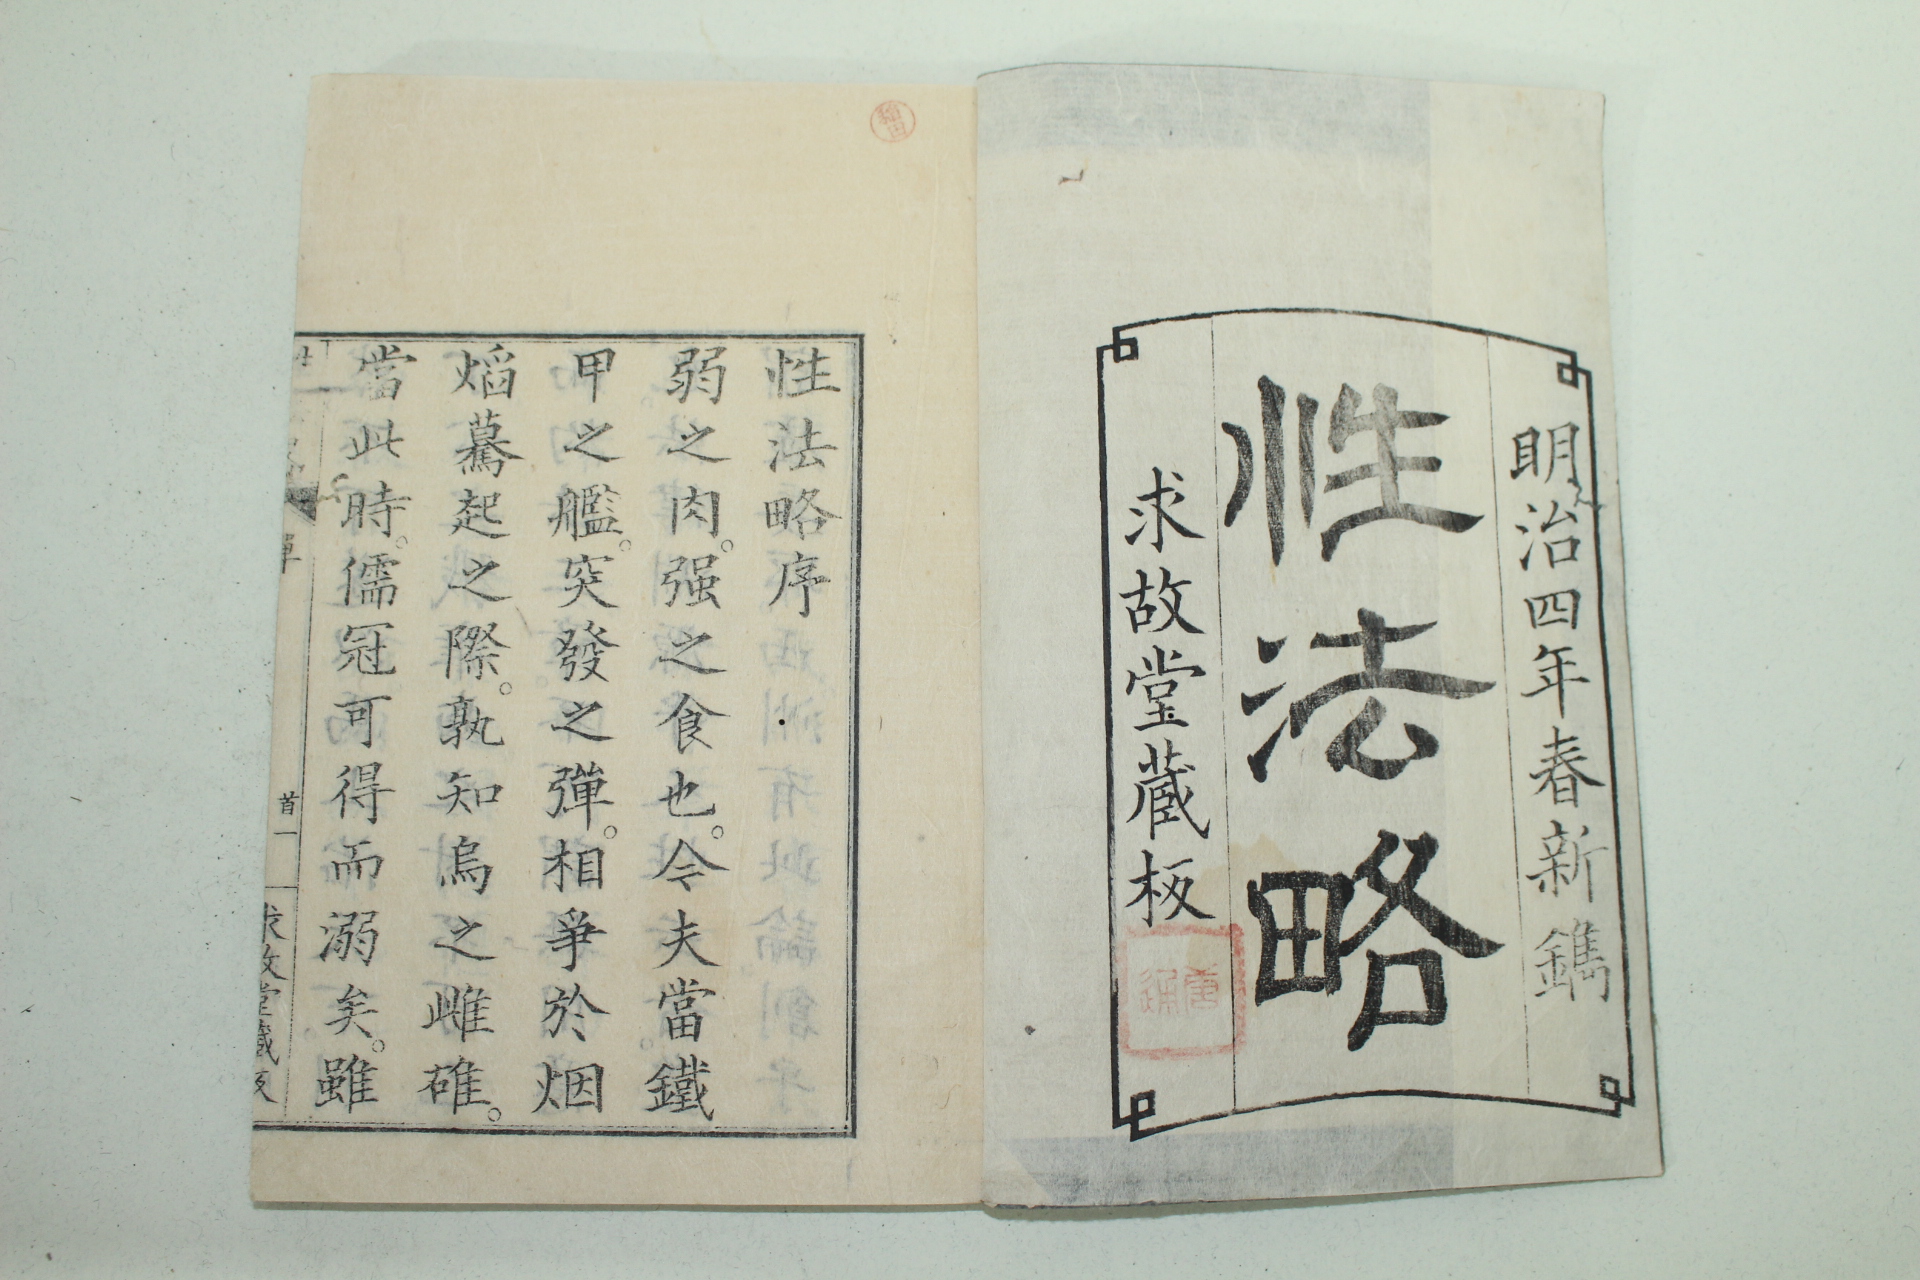 明治四年春新鐫
性法略
求故堂蔵板
性法略序
弱之肉。强之食也。今夫當鐵
甲之艦。突發之彈。相爭於烟
焰驀起之際。孰知烏之雌碓。
當此時。儒冠可得而溺矣。雖
首一
求故堂蔵板